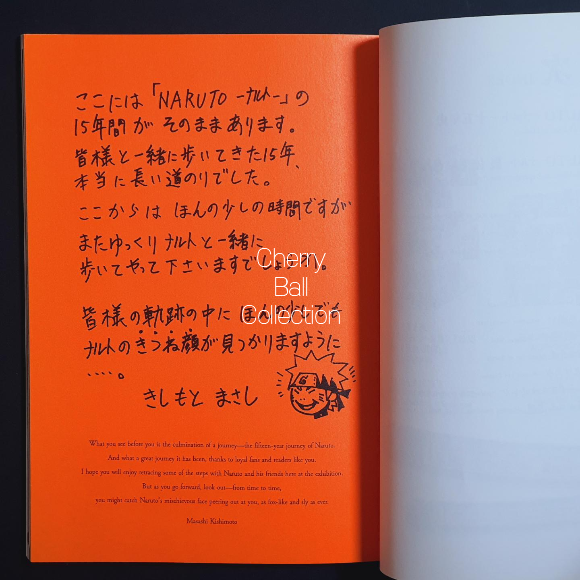 ここには「NARUTO －ナルト－」の
15年間が そのままあります。
皆様と一緒に歩いてきた15年、
本当に長い道のりでした。
ここからは ほんの少しの時間ですが
またゆっくり ナルトと一緒に
歩いてやって下さいますでしょうか。
Cherry
Ball
Collection
皆様の軌跡の中に ほんの少しでも
ナルトのきつね顔が見つかりますように
‥‥。
きしもと まさし
What you see before you is the culmination of a journey—the fifteen-year journey of Naruto.
And what a great journey it has been, thanks to loyal fans and readers like you.
I hope you will enjoy retracing some of the steps with Naruto and his friends here at the exhibition.
But as you go forward, look out—from time to time,
you might catch Naruto's mischievous face peering out at you, as fox-like and sly as ever.
Masashi Kishimoto